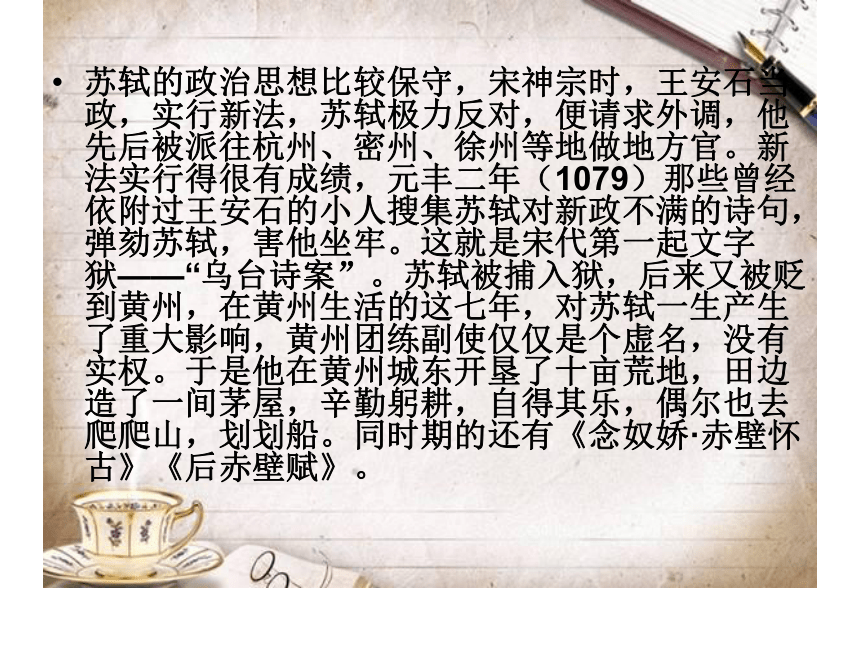 • 苏轼的政治思想比较保守，宋神宗时，王安石当
政，实行新法，苏轼极力反对，便请求外调，他
先后被派往杭州、密州、徐州等地做地方官。新
法实行得很有成绩，元丰二年（1079）那些曾经
依附过王安石的小人搜集苏轼对新政不满的诗句，
弹劾苏轼，害他坐牢。这就是宋代第一起文字
狱——“乌台诗案”。苏轼被捕入狱，后来又被贬
到黄州，在黄州生活的这七年，对苏轼一生产生
了重大影响，黄州团练副使仅仅是个虚名，没有
实权。于是他在黄州城东开垦了十亩荒地，田边
造了一间茅屋，辛勤躬耕，自得其乐，偶尔也去
爬爬山，划划船。同时期的还有《念奴娇·赤壁怀
古》《后赤壁赋》。